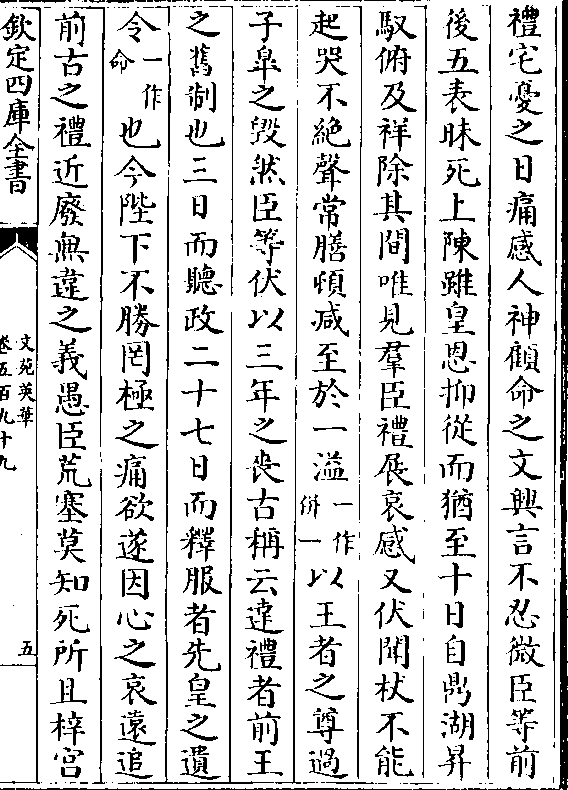 禮宅憂之日痛感人神顧命之文興言不忍微臣等前
後五表昧死上陳雖皇恩抑從而猶至十日自鼎湖昇
馭俯及祥除其間唯見羣臣禮展哀感又伏聞杖不能
起哭不絶聲常膳頓减至於一溢一作倂一以王者之尊過
子臯之毁然臣等伏以三年之喪古稱云違禮者前王
之舊制也三日而聽政二十七日而釋服者先皇之遺
令一作命也今陛下不勝罔極之痛欲遂因心之哀遠追
前古之禮近廢無違之義愚臣荒塞莫知死所且梓宫
欽定四庫全書
文苑英華
卷五百九十九
五